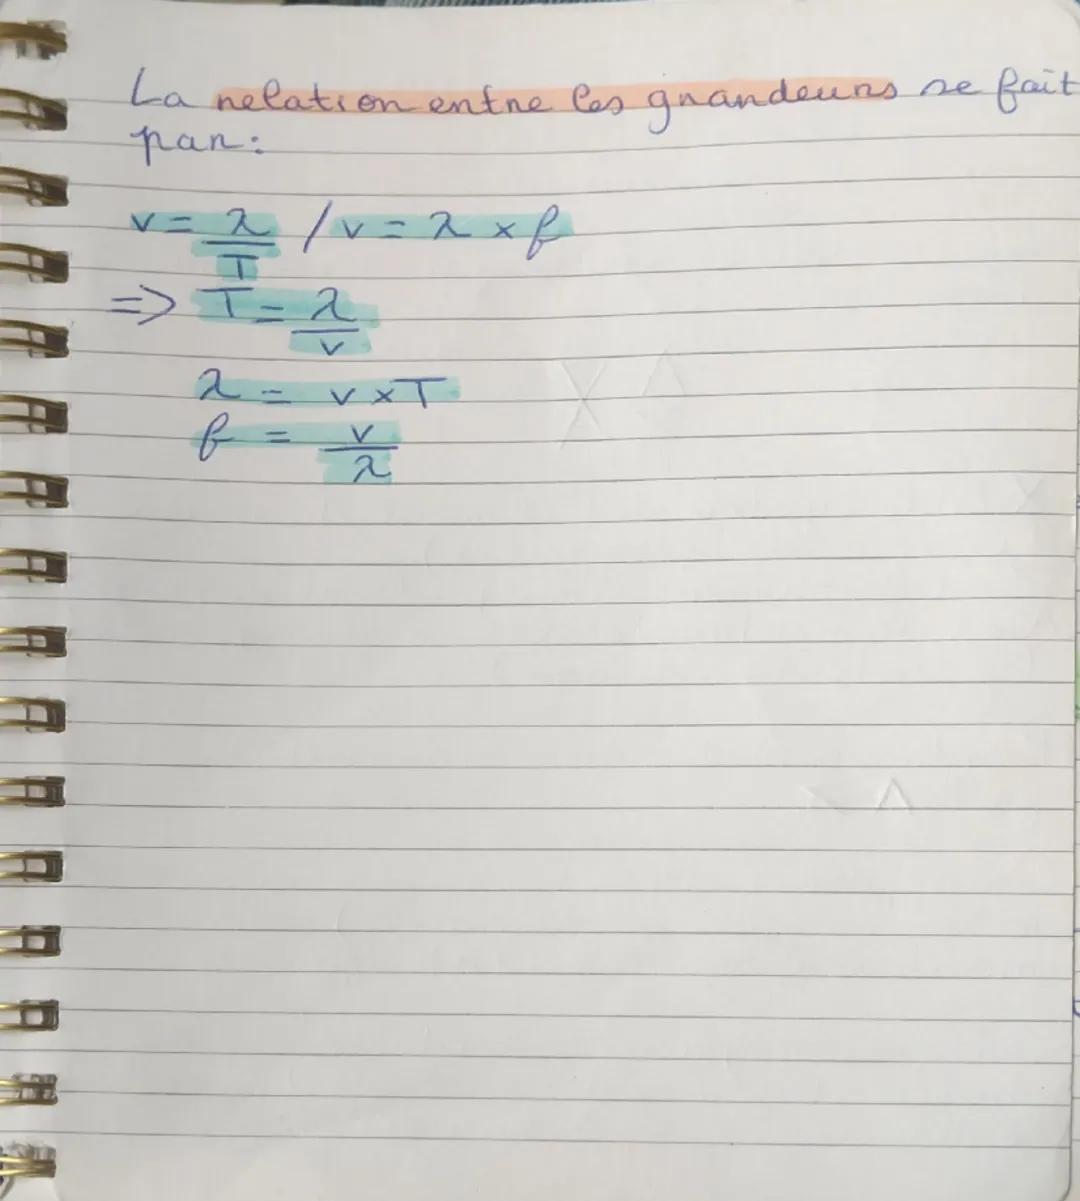 La relation entre les grandeurs se fait
par:
v = λ/T / v = λ × f
=> T = λ/v
λ = v × T
f = v/λ